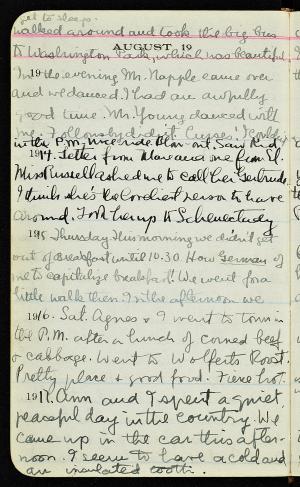 get to sleep.
walked around and took the big bus
to Washington Park, which was beautiful
AUGUST 19
19 In the evening Mr. Napple came over
and we danced. I had an awfully
good time. Mr. Young danced with
me.
in the P.M. nice ride Mar out. Saw
1914. Letter from Mar and one from El.
Miss Russell asked me to call her Gertrude
I think she's the loveliest person to have
around. Took her up to Schenectady
1915 Thursday. This morning we didn't get
out of breakfast until 10.30 How German of
me to capitalize breakfast! We went for a
little walk then. In the afternoon we
1916. Sat. Agnes & I went to town in
the P.M. after a lunch of corned beef
& cabbage. Went to Wolferts Roost.
Pretty place & good food. Fierce hot.
191 Ann and I spent a quiet,
peaceful day in the country. We
came up in the car this after-
noon. I seem to have a cold and
an tooth.